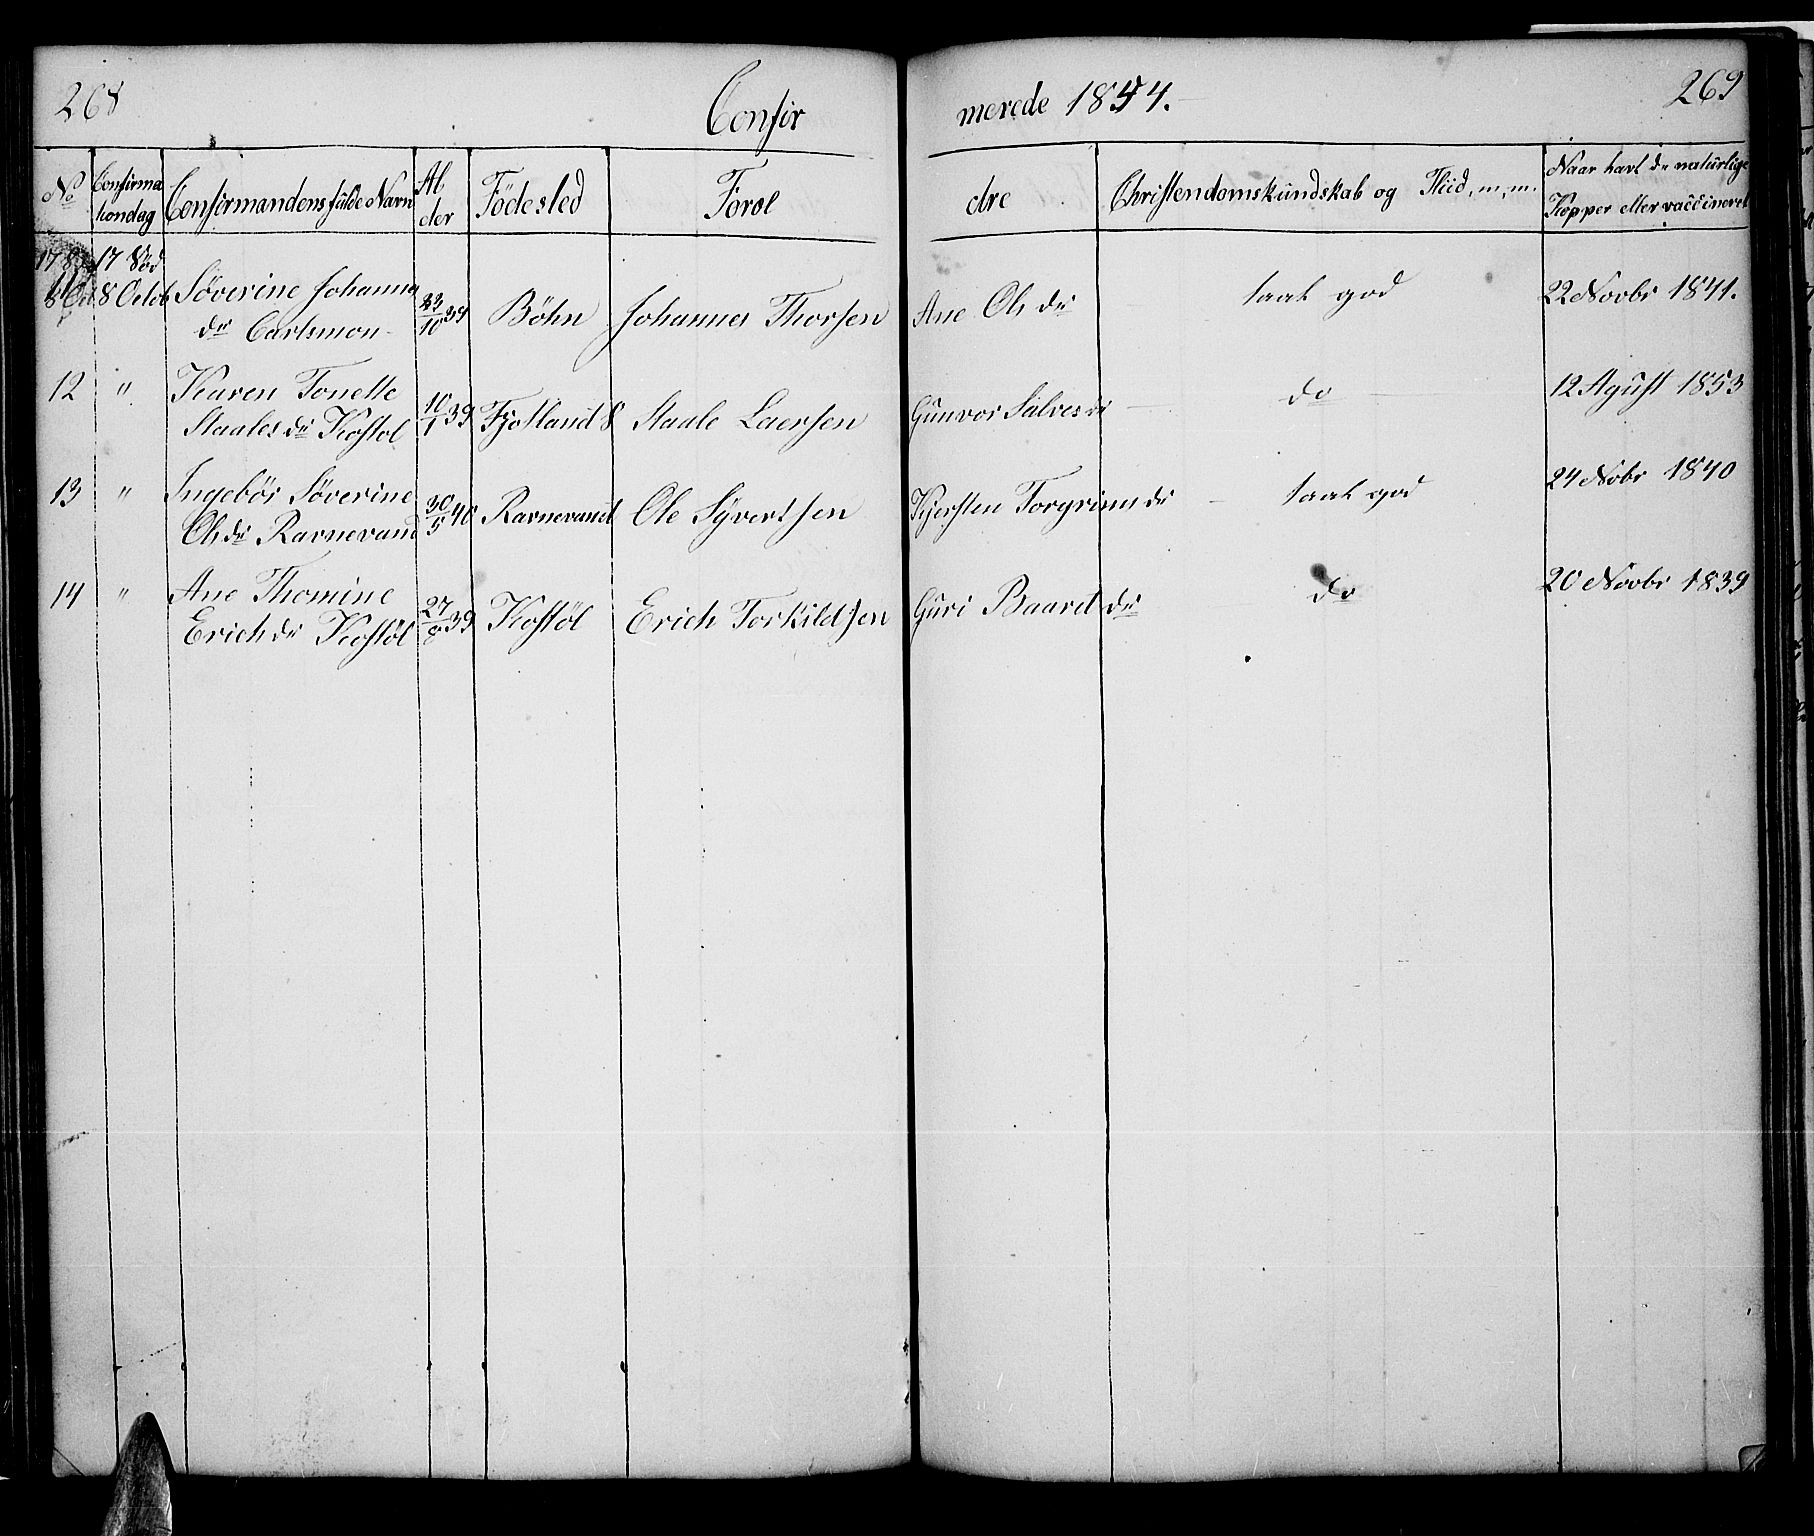 268
Confir
merede 1854.
269
No
Confirma
tiondag
Confirmandens fulde Navn
Al
der
Födested
Forol
dre
Christendomskundskab og Fliid, m, m.
Naar havt de naturlige
Kopper eller vaccineret
17 Söd
8 Octob
Söverine Johanne
dr Carlsmon
23/10 39
Böhn
Johannes Thorsen
Ane Ols dr
taal. god
22 Novbr 1841.
12
"
Karen Tonette
Staales dr Kostol
10/1 39
Fjotland S
Staale Laersen
Gunvor Salves dr
do
12 Agust 1853
13
"
Ingebör Söverine
Ols dr Ravnevand
30/5 40
Ravnevand
Ole Syvertsen
Kjersten Torgrims dr
taal. god
24 Nobr 1840
14
"
Ane Thomine
Erichs dr Kostöl
27/8 39
Kostöl
Erich Torkildsen
Guri Baards dr
do
20 Novbr 1839